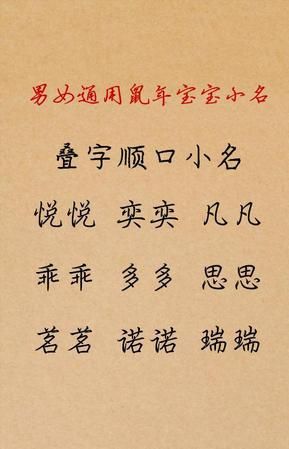 男女通用鼠年宝宝小名
叠字顺口小名
悦悦 奕奕 凡凡
乖乖 多多 思思
茗茗 诺诺 瑞瑞